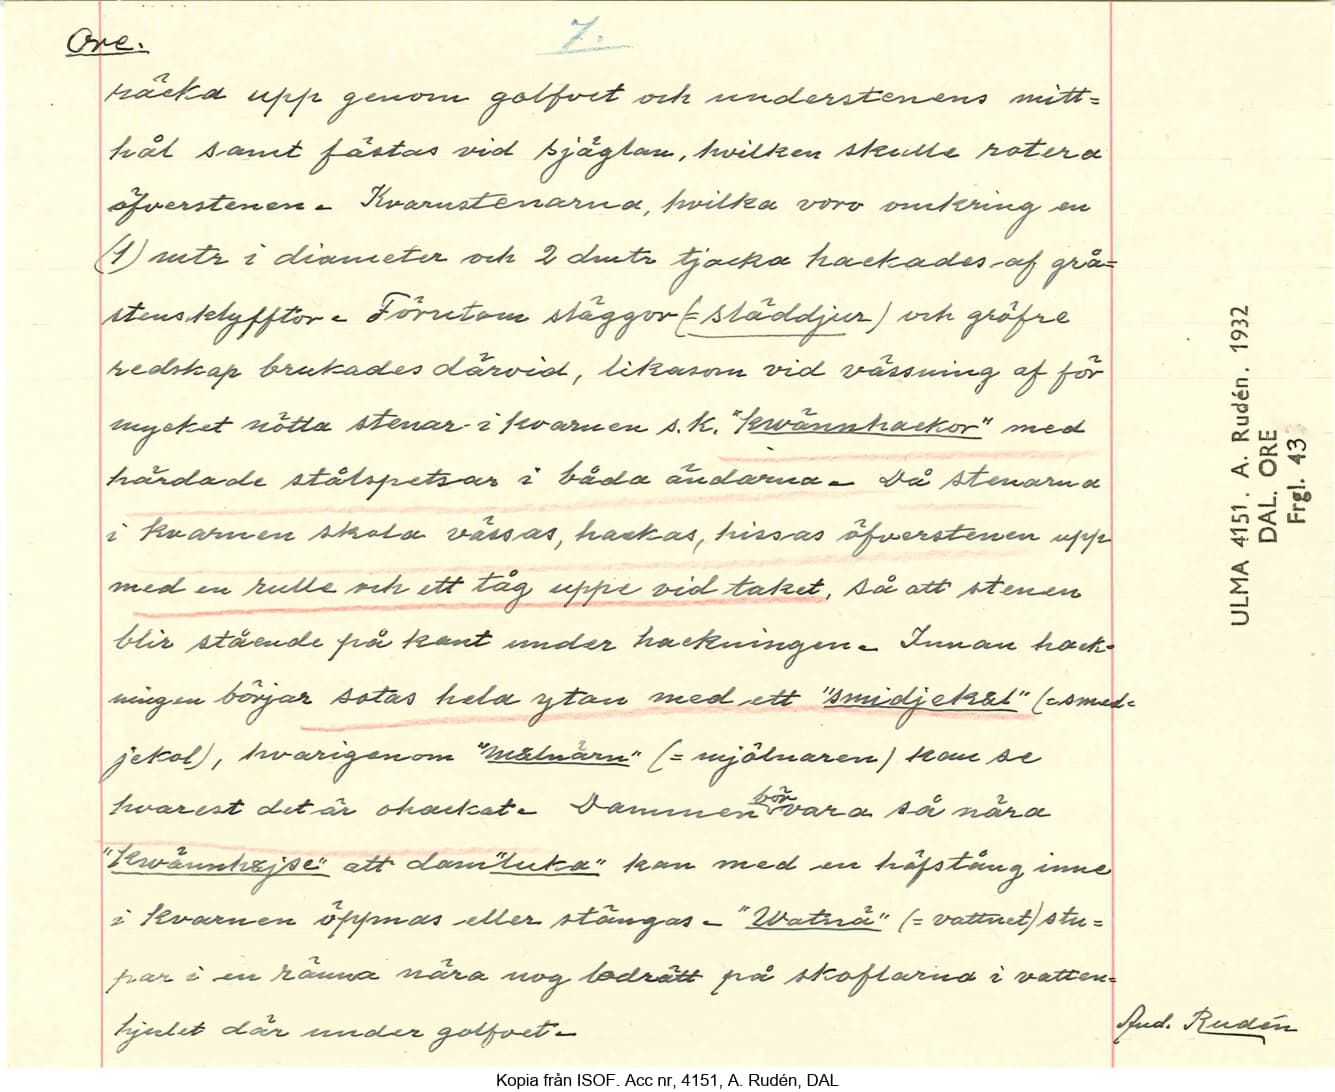 Ore.
7.
räcka upp genom golfvet och understenens mitt=
hål samt fästas vid sjäglan, hvilken skulle rotera
öfverstenen. Kvarnstenarna, hvilka voro omkring en
(1) mtr i diameter och 2 dmtr tjocka hackades af grå=
stensklyfftor. Förutom släggor (= släddjur) och gröfre
redskap brukades därvid, likasom vid vässning af för
mycket nötta stenar i kvarnen s.k. "kwännhackor" med
härdade stålspetsar i båda ändarna. Då stenarna
i kvarnen skola vässas, hackas, hissas öfverstenen upp
med en rulle och ett tåg uppe vid taket, så att stenen
blir stående på kant under hackningen. Innan hack-
ningen börjar sotas hela ytan med ett "smidjekål" (=smed=
jekol), hvarigenom "mälnärn" (= mjölnaren) kan se
hvarest det är ohackat. Dammen bör vara så nära
"kwännhäjse" att dam"luka" kan med en häfstång inne
i kvarnen öppnas eller stängas. "Watnä" (= vattnet) stu=
par i en ränna nära nog lodrätt på skoflarna i vatten=
hjulet där under golfvet.
And. Rudén
ULMA 4151. A. Rudén. 1932
DAL. ORE
Frgl. 43
Kopia från ISOF. Acc nr, 4151, A. Rudén, DAL